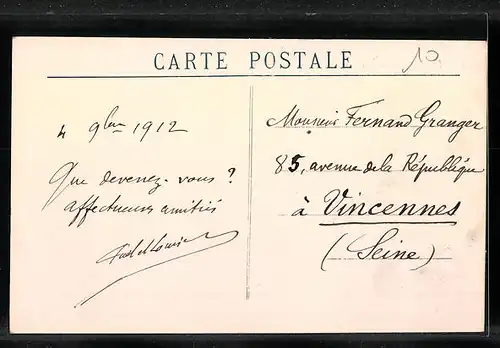 CARTE POSTALE
10
4 9bre 1912
Que devenez-vous ?
affectueuses amitiés
Monsieur Fernand Granger
85, avenue de la République
à Vincennes
(Seine)